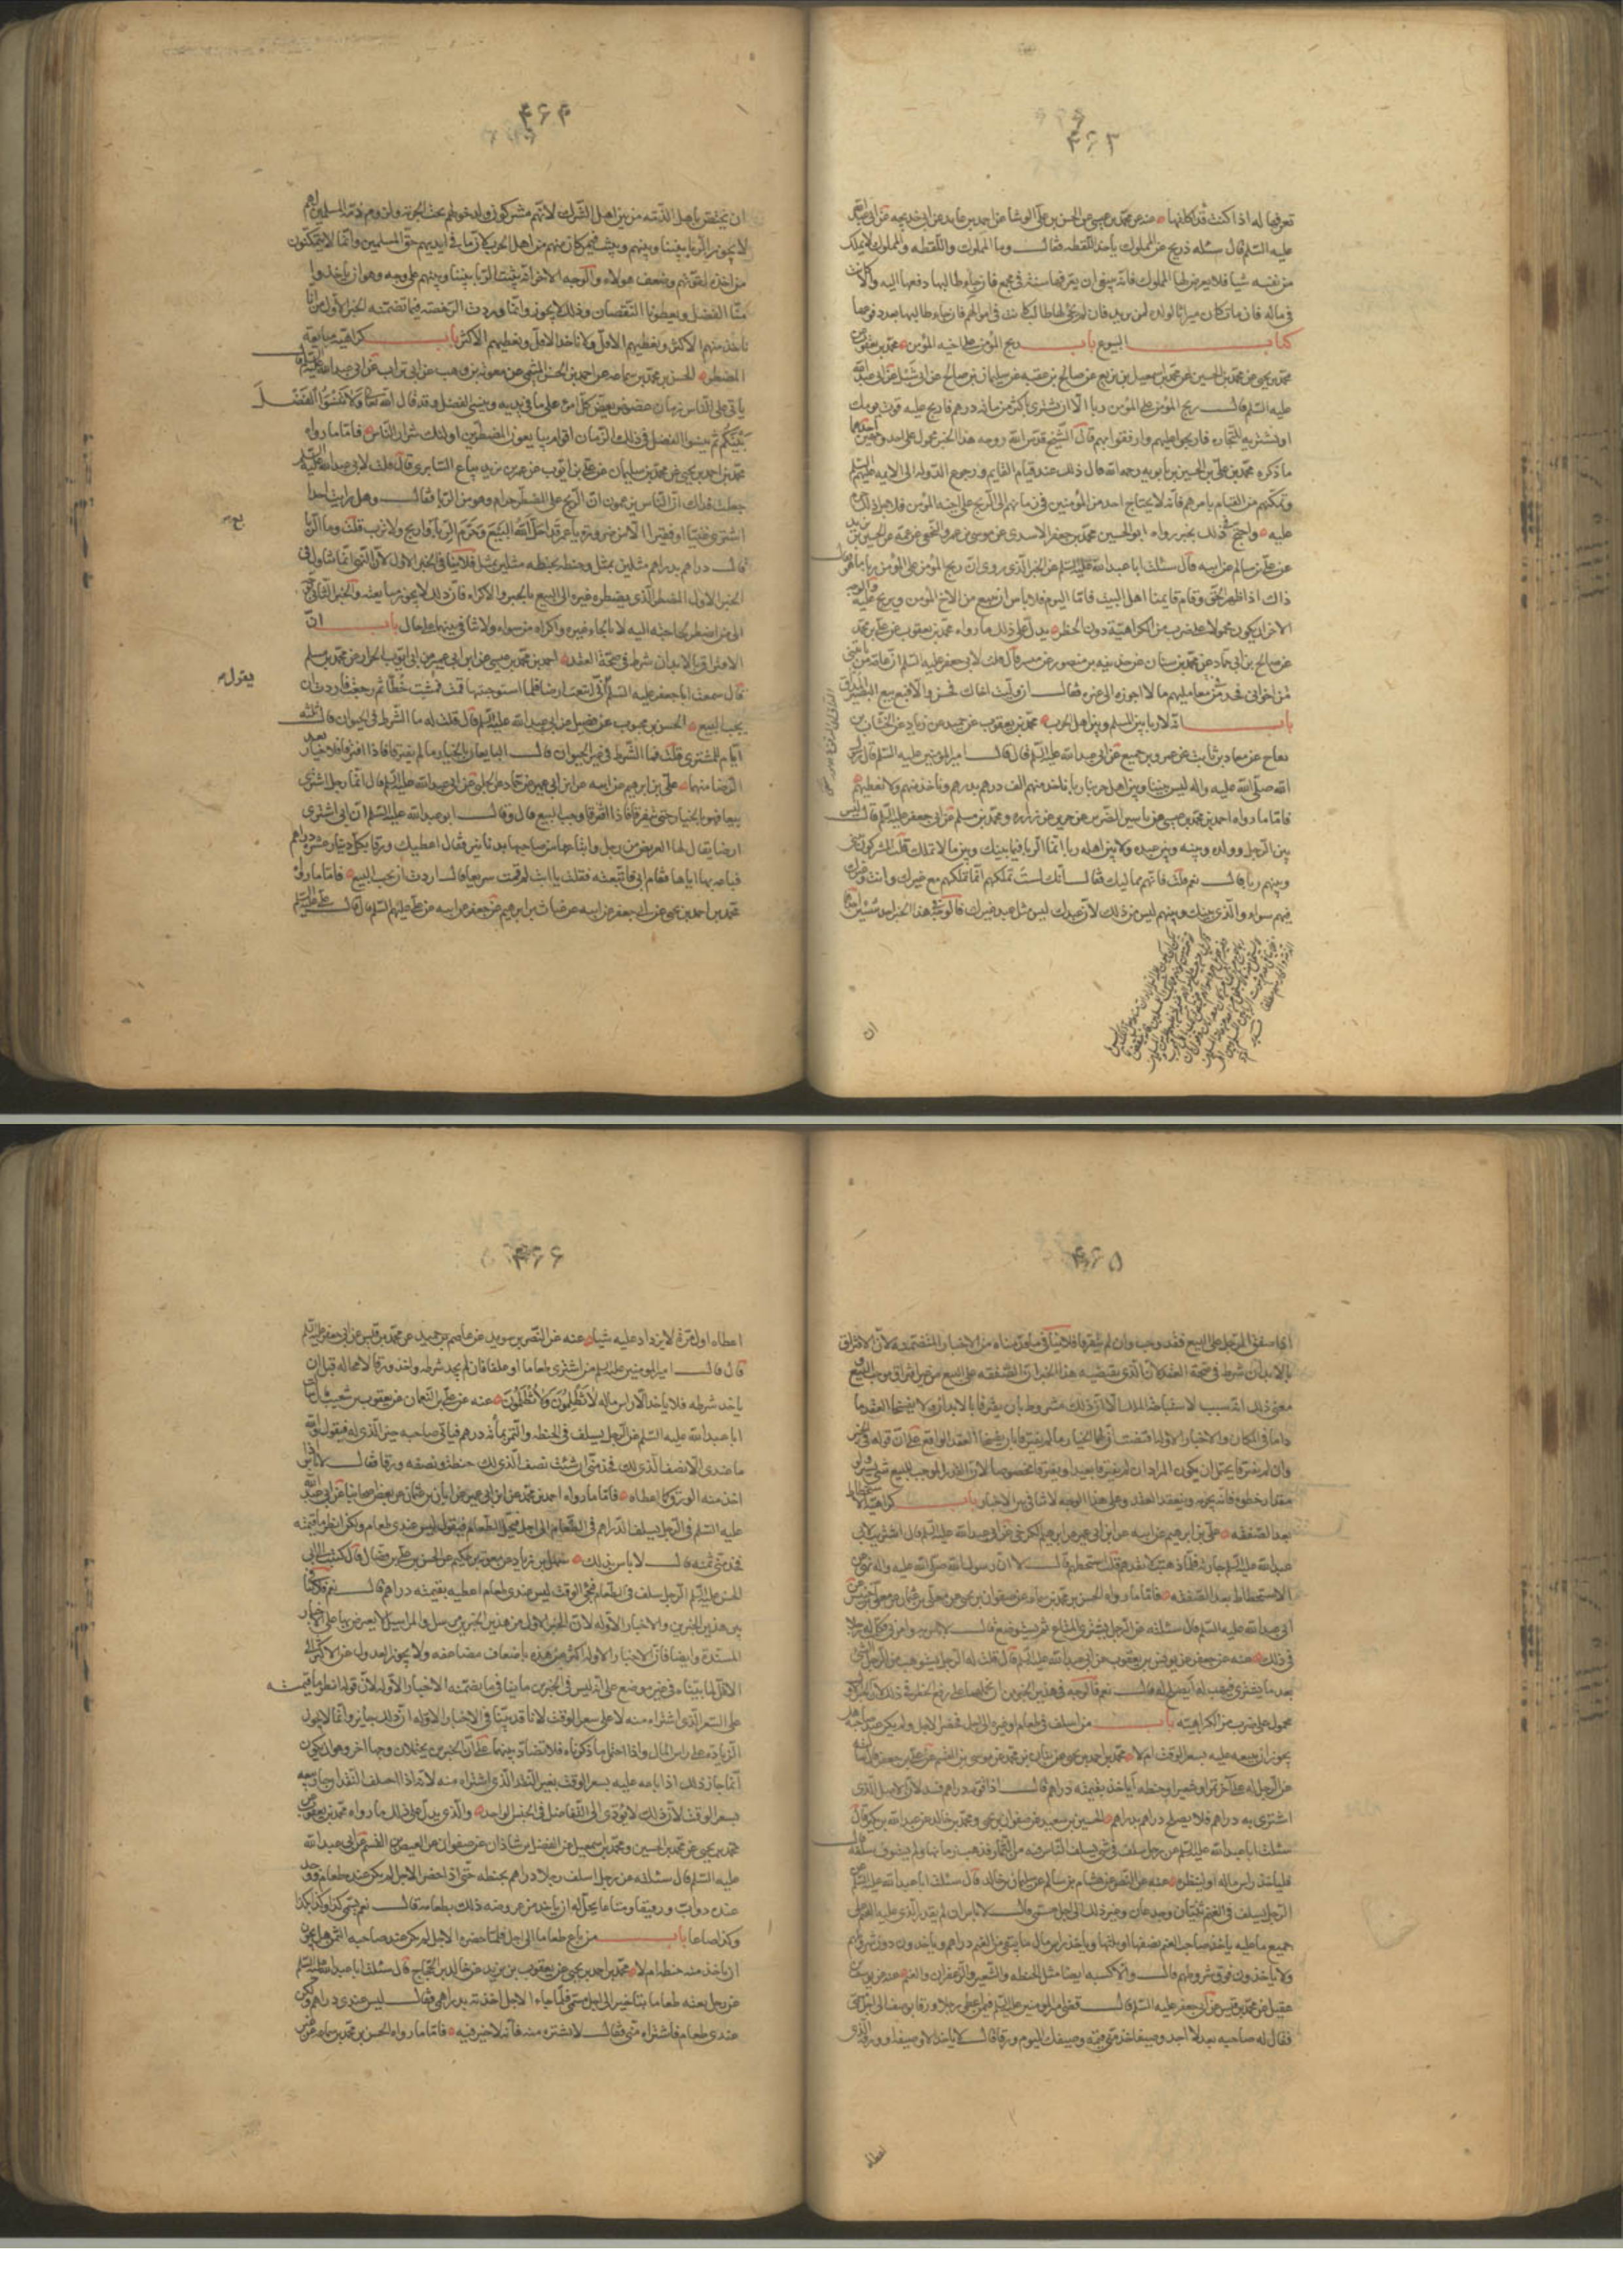 ۴۶۳
تعرفها له اذا كنت قد كلانها عنه عن محمد بن عيسى عن الحسن بن علي الوشا عن احمد بن عايذ عن ابي خديجه عن ابي عبد الله
عليه السلم قال سئله ذريح عن المملوك ياخذ اللقطه فقال وما المملوك واللقطه والمملوك لا يملك
من نفسه شيا فلا يعرض لها المملوك فانه ينبغي ان يعرفها سنة في مجمع فان جاء طالبها دفعها اليه والا كانت
في ماله فان مات كان ميراثا لولده لمن يرثه فان لم يجئ لها طالب كانت في اموالهم فان جاء طالبها بعد دفعوها
كتاب البيوع باب ربح المؤمن على اخيه المؤمن محمد بن يعقوب عن
محمد بن يحيى عن محمد بن الحسين عن محمد بن اسمعيل بن بزيع عن صالح بن عقبه عن سليمان بن صالح عن ابي شبل عن ابي عبد الله
عليه السلم قال ربح المؤمن على المؤمن ربا الا ان يشتري باكثر من مائة درهم فاربح عليه قوت يومك
او يشتريه للتجاره فاربحوا عليهم وارفقوا بهم قال الشيخ قدس الله روحه هذا الخبر محمول على احد وجهين احدهما
ما ذكره محمد بن علي بن الحسين بن بابويه رحمه الله قال ذلك عند قيام القايم ورجوع الدوله الى الايمه عليهم السلم
وتمكنهم من القيام بامرهم فانه لا يحتاج احد من المؤمنين في زمانهم الى الربح على اخيه المؤمن
عليه واحتج في ذلك بخبر رواه ابو الحسين محمد بن جعفر الاسدي عن موسى بن عمران النخعي عن عمه الحسين بن يزيد
عن علي بن سالم عن ابيه قال سئلت ابا عبد الله عليه السلم عن الخبر الذي روى ان ربح المؤمن على المؤمن ربا ما هو فقال
ذاك اذا ظهر الحق وقام قايمنا اهل البيت فاما اليوم فلا باس ان يبيع من الاخ المؤمن ويربح عليه والوجه
الاخر ان يكون محمولا على ضرب من الكراهية دون الحظر يدل على ذلك ما رواه محمد بن يعقوب عن علي بن محمد
عن صالح بن ابي حماد عن محمد بن سنان عن حذيفه بن منصور عن ميسر قال قلت لابي جعفر عليه السلم ان عامة من ياتيني
من اخواني فحد لي من معاملتهم ما لا اجوزه الى غيره فقال ان وليت اخاك فحسن والا فبع بيع البصير المداق
باب انه لا ربا بين المسلم وبين اهل الحرب محمد بن يعقوب عن حميد بن زياد عن الخشاب عن
بقاح عن معاذ بن ثابت عن عمرو بن جميع عن ابي عبد الله عليه السلم قال قال امير المؤمنين عليه السلم قال رسول
الله صلى الله عليه واله ليس بيننا وبين اهل حربنا ربا ناخذ منهم الف درهم بدرهم وناخذ منهم ولا نعطيهم
فاما ما رواه احمد بن محمد بن عيسى عن ياسين الضرير عن حريز عن زراره ومحمد بن مسلم عن ابي جعفر عليه السلم قال ليس
بين الرجل وولده وبينه وبين عبده ولا بين اهله ربا انما الربا فيما بينك وبين ما لا تملك قلت المشركون بيني
وبينهم ربا قال نعم قلت فانهم مماليك فقال انك لست تملكهم انما تملكهم مع غيرك وانت وغيرك
فيهم سواء والذي بينك وبينهم ليس من ذلك لان عبدك ليس مثل عبد غيرك فالوجه في هذا الخبر احد شيئين احدهما
ان
۴۶۴
ان نخص باهل الذمه من بين اهل الشرك لانهم مشركون ولدخولهم تحت الجزيه ولزومهم ذمه المسلمين لهم
لا يجوز الربا بيننا وبينهم ويشبه فيهم كان بينهم من اهل الحرب كان ما في ايديهم حق المسلمين وانما لا يتمكنون
من اخذه لقوتهم وضعف هولاء والوجه الاخر انه يثبت الربا بيننا وبينهم على وجه وهو ان ياخذوا
منا الفضل ويعطونا النقصان وذلك لا يجوز وانما وردت الرخصه فيما تضمنه الخبر الاول من انا
ناخذ منهم الاكثر ونعطيهم الاقل ولا ناخذ الاقل ونعطيهم الاكثر باب كراهية مبايعة
المضطر الحسن بن محمد بن سماعه عن احمد بن الحسن الميثمي عن معويه بن وهب عن ابي تراب عن ابي عبد الله عليه السلم قال
ياتي على الناس زمان عضوض يعض كل امرء على ما في يديه وينسى الفضل وقد قال الله تعالى وَلَا تَنْسَوُا الْفَضْلَ
بَيْنَكُمْ ثم ينبري في ذلك الزمان اقوام يبايعون المضطرين اولئك شرار الناس فاما ما رواه
محمد بن احمد بن يحيى عن محمد بن سليمان عن علي بن ايوب عن عمر بن يزيد بياع السابري قال قلت لابي عبد الله عليه السلم
جعلت فداك ان الناس يزعمون ان الربح على المضطر حرام وهو من الربا فقال وهل رايت احدا
اشترى غنيا او فقيرا الا من ضروره يا عمر قد احل الله البيع وحرم الربا فاربح ولا ترب قلت وما الربا
قال دراهم بدراهم مثلين بمثل وحنطه بحنطه مثلين بمثل فلا ينافي الخبر الاول لان النهي انما تناول في
الخبر الاول المضطر الذي يضطره غيره الى البيع بالجبر والاكراه فان ذلك لا يجوز مبايعته والخبر الثاني
الى من اضطر بحاجته اليه لا بالجاء غيره واكراه من سواه ولا تنافي بينهما على حال باب ان
الافتراق بالابدان شرط في صحة العقد احمد بن محمد بن عيسى عن ابن ابي عمير عن ابي ايوب الخزاز عن محمد بن مسلم
قال سمعت ابا جعفر عليه السلم يقول اني ابتعت ارضا فلما استوجبتها قمت فمشيت خطا ثم رجعت فاردت ان
يجب البيع الحسن بن محبوب عن فضيل عن ابي عبد الله عليه السلم قال قلت له ما الشرط في الحيوان قال ثلثة
ايام للمشتري قلت فما الشرط في غير الحيوان قال البايعان بالخيار ما لم يفترقا فاذا افترقا فلا خيار بعد
الرضا منهما علي بن ابرهيم عن ابيه عن ابن ابي عمير عن حماد عن الحلبي عن ابي عبد الله عليه السلم قال ايما رجل اشترى
بيعا فهو بالخيار حتى يفترقا فاذا افترقا وجب البيع قال وقال ابو عبد الله عليه السلم ان ابي اشترى
ارضا يقال لها العريض من رجل وابتاعها من صاحبها بدنانير فقال اعطيك ورقا بكل دينار عشره دراهم
فباعه بها اياها فقام ابي فاتبعته فقلت يا ابت لم قمت سريعا قال اردت ان يجب البيع فاما ما رواه
محمد بن احمد بن يحيى عن ابي جعفر عن ابيه عن غياث بن ابرهيم عن جعفر عن ابيه عن علي عليهم السلم قال قال علي عليه السلم
يقول
۴۶۵
اذا صفق الرجل على البيع فقد وجب وان لم يفترقا فلا ينافي ما قدمناه من الاخبار المتضمنه لان الافتراق
بالابدان شرط في صحة العقد لان الذي يقتضيه هذا الخبر ان الصفقه على البيع من غير افتراق موجب للبيع
معنى ذلك انه سبب لاستباحة الملك الا ان ذلك مشروط بان يفترقا بالابدان ولا يفسخا العقد ما
داما في المكان والاخبار الاوله اقتضت ان لهما الخيار ما لم يفترقا بان يفسخا العقد الواقع على ان قوله في الخبر
وان لم يفترقا يحتمل ان يكون المراد ان لم يفترقا بعيدا او يفترقا مخصوصا لان القدر الموجب للبيع شئ يسير ولو
مقدار خطوه فانه يجزيه وينعقد العقد وعلى هذا الوجه لا تنافي بين الاخبار باب كراهية الاستحطاط
بعد الصفقه علي بن ابرهيم عن ابيه عن ابن ابي عمير عن ابرهيم الكرخي عن ابي عبد الله عليه السلم قال اشتريت لابي
عبد الله عليه السلم جاريه فلما ذهبت انقدهم قلت استحطهم قال لا ان رسول الله صلى الله عليه واله نهى عن
الاستحطاط بعد الصفقه فاما ما رواه الحسن بن محمد بن سماعه عن صفوان بن يحيى عن معلى بن عثمان عن معلى بن خنيس عن
ابي عبد الله عليه السلم قال سئلته عن الرجل يشتري المتاع ثم يستوضع قال لا باس وامرني فكلمت له رجلا
في ذلك عنه عن جعفر عن يونس بن يعقوب عن ابي عبد الله عليه السلم قال قلت له الرجل يستوهب من الرجل الشئ
بعد ما يشتري فيهب له ايصلح له قال نعم فالوجه في هذين الخبرين ان نحملهما على رفع الحظر في ذلك لان الاول
محمول على ضرب من الكراهيه باب من اسلف في طعام او غيره الى اجل فحضر الاجل ولم يكن عند صاحبه هل
يجوز ان يبيعه عليه بسعر الوقت ام لا محمد بن احمد بن يحيى عن بنان بن محمد عن موسى بن القسم عن علي بن جعفر قال سئلته
عن الرجل له على اخر تمر او شعير او حنطه اياخذ بقيمته دراهم قال اذا قومه دراهم فسد لان الاصل الذي
اشترى به دراهم فلا يصلح دراهم بدراهم الحسين بن سعيد عن صفوان بن يحيى ومحمد بن خالد عن عبد الله بن بكير قال
سئلت ابا عبد الله عليه السلم عن رجل سلف في شئ يسلف الناس فيه من الثمار فذهب زمانها ولم يستوف سلفه قال
فلياخذ راس ماله او لينظره عنه عن النضر عن هشام بن سالم عن سليمان بن خالد قال سئلت ابا عبد الله عليه السلم عن
الرجل يسلف في الغنم ثنيان وجذعان وغير ذلك الى اجل مسمى قال لا باس ان لم يقدر الذي عليه الغنم على
جميع ما عليه ياخذ صاحب الغنم نصفها او ثلثها وياخذ راس مال ما بقي من الغنم دراهم وياخذون دون شروطهم
ولا ياخذون فوق شروطهم قال والاكسيه ايضا مثل الحنطه والشعير والزعفران والغنم عنه عن يوسف بن
عقيل عن محمد بن قيس عن ابي جعفر عليه السلم قال قضى امير المؤمنين عليه السلم فيمن اعطى رجلا ورقا بوصيف الى اجل مسمى
فقال له صاحبه بعد لا اجد وصيفا خذ مني قيمة وصيفك اليوم ورقا فقال لا ياخذ الا وصيفه او ورقه الذي
اعطاه
۴۶۶
اعطاه اول مرة لا يزداد عليه شيا عنه عن النضر بن سويد عن عاصم بن حميد عن محمد بن قيس عن ابي جعفر عليه السلم
قال قال امير المؤمنين عليه السلم من اشترى طعاما او علفا فان لم يجد شرطه واخذ ورقا لا محاله قبل ان
ياخذ شرطه فلا ياخذ الا راس ماله لَا تَظْلِمُونَ وَلَا تُظْلَمُونَ عنه عن علي بن النعمان عن يعقوب بن شعيب قال سئلت
ابا عبد الله عليه السلم عن الرجل يسلف في الحنطه والتمر بمائه درهم فياتي صاحبه حين الذي له فيقول والله
ما عندي الا نصف الذي لك فخذ مني ان شئت نصف الذي لك حنطه ونصفه ورقا فقال لا باس اذا
اخذ منه الورق كما اعطاه فاما ما رواه احمد بن محمد عن ابن ابي عمير عن ابان بن عثمان عن بعض اصحابنا عن ابي عبد الله
عليه السلم في الرجل يسلف الدراهم في الطعام الى اجل فيحل الطعام فيقول ليس عندي طعام ولكن انظر ما قيمته
فخذ مني ثمنه قال لا باس بذلك سهل بن زياد عن معويه بن حكيم عن الحسن بن علي بن فضال قال كتبت الى ابي
الحسن عليه السلم الرجل يسلف في الطعام فيجئ الوقت وليس عندي طعام اعطيه بقيمته دراهم قال نعم فلا تنافي
بين هذين الخبرين والاخبار الاوله لان الخبر الاول من هذين الخبرين مرسل والمراسيل لا يعترض بها على الاخبار
المسنده وايضا فان الاخبار الاوله اكثر من هذه باضعاف مضاعفه ولا يجوز العدول عن الاكثر الى
الاقل لما بيناه في غير موضع على انه ليس في الخبرين ما ينافي ما تضمنته الاخبار الاوله لان قوله انظر ما قيمته
على السعر الذي اشتراه منه لا على سعر الوقت لانا قد بينا في الاخبار الاوله ان ذلك جايز وانما لا يجوز
الزياده على راس المال واذا احتمل ما ذكرناه فلا تضاد بينهما على ان الخبرين يحتملان وجها اخر وهو ان يكون
انما جاز ذلك اذا باعه عليه بسعر الوقت بغير النقد الذي اشتراه منه لانه اذا اختلف النقدان جاز بيعه
بسعر الوقت لان ذلك لا يؤدي الى التفاضل في الجنس الواحد والذي يدل على ذلك ما رواه محمد بن يعقوب عن
محمد بن يحيى عن محمد بن الحسين ومحمد بن اسمعيل عن الفضل بن شاذان عن صفوان عن العيص بن القسم عن ابي عبد الله
عليه السلم قال سئلته عن رجل اسلف رجلا دراهم بحنطه حتى اذا حضر الاجل لم يكن عنده طعام ووجد
عنده دوابا ورقيقا ومتاعا يحل له ان ياخذ من عروضه ذلك بطعامه قال نعم يسمي كذا وكذا بكذا
وكذا صاعا باب من باع طعاما الى اجل فلما حضره الاجل لم يكن عند صاحبه الثمن هل يجوز
ان ياخذ منه حنطه ام لا محمد بن احمد بن يحيى عن يعقوب بن يزيد عن خالد بن الحجاج قال سئلت ابا عبد الله عليه السلم
عن رجل بعته طعاما بتاخير الى اجل مسمى فلما جاء الاجل اخذته بدراهمي فقال ليس عندي دراهم ولكن
عندي طعام فاشتراه مني فقال لا تشتره منه فانه لا خير فيه فاما ما رواه الحسن بن محمد بن سماعه عن